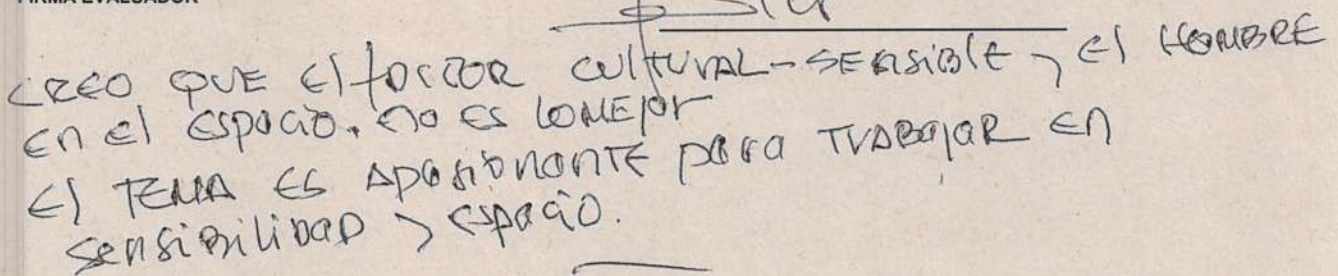 FIRMA EVALUADOR
CREO QUE El factor cultural-sensible y el HOMBRE
en el espacio. no es lo mejor
El TEMA ES Apasionante para TRABAJAR en
sensibilidad y espacio.